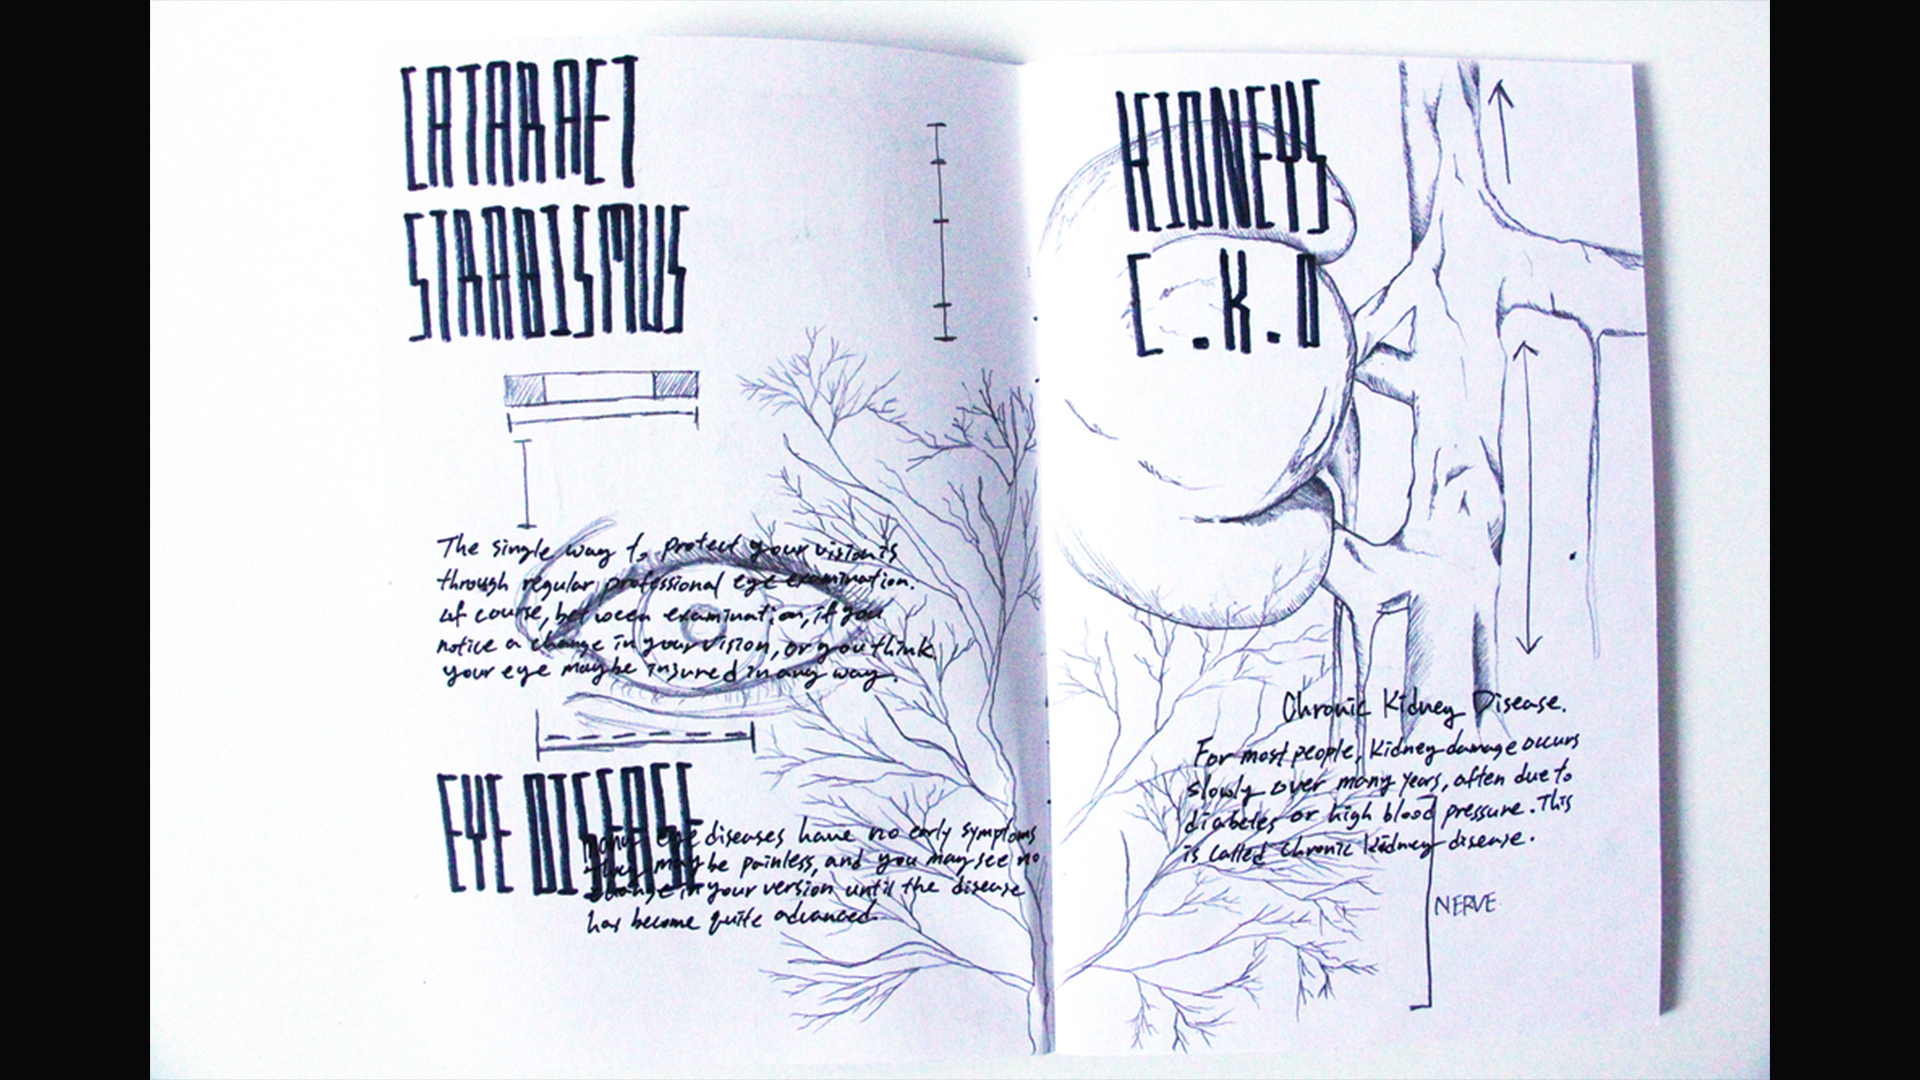 CATARAET
STRABISMUS
The single way to protect your vision is
through regular professional eye examination.
of course, between examination, if you
notice a change in your vision, or you think
your eye may be insured in any way.
EYE DISEASE
many eye diseases have no early symptoms
They may be painless, and you may see no
change in your version until the disease
has become quite advanced.
KIDNEYS
C.K.D
Chronic Kidney Disease.
For most people, Kidney damage occurs
slowly over many years, often due to
diabetes or high blood pressure. This
is called chronic kidney disease.
NERVE